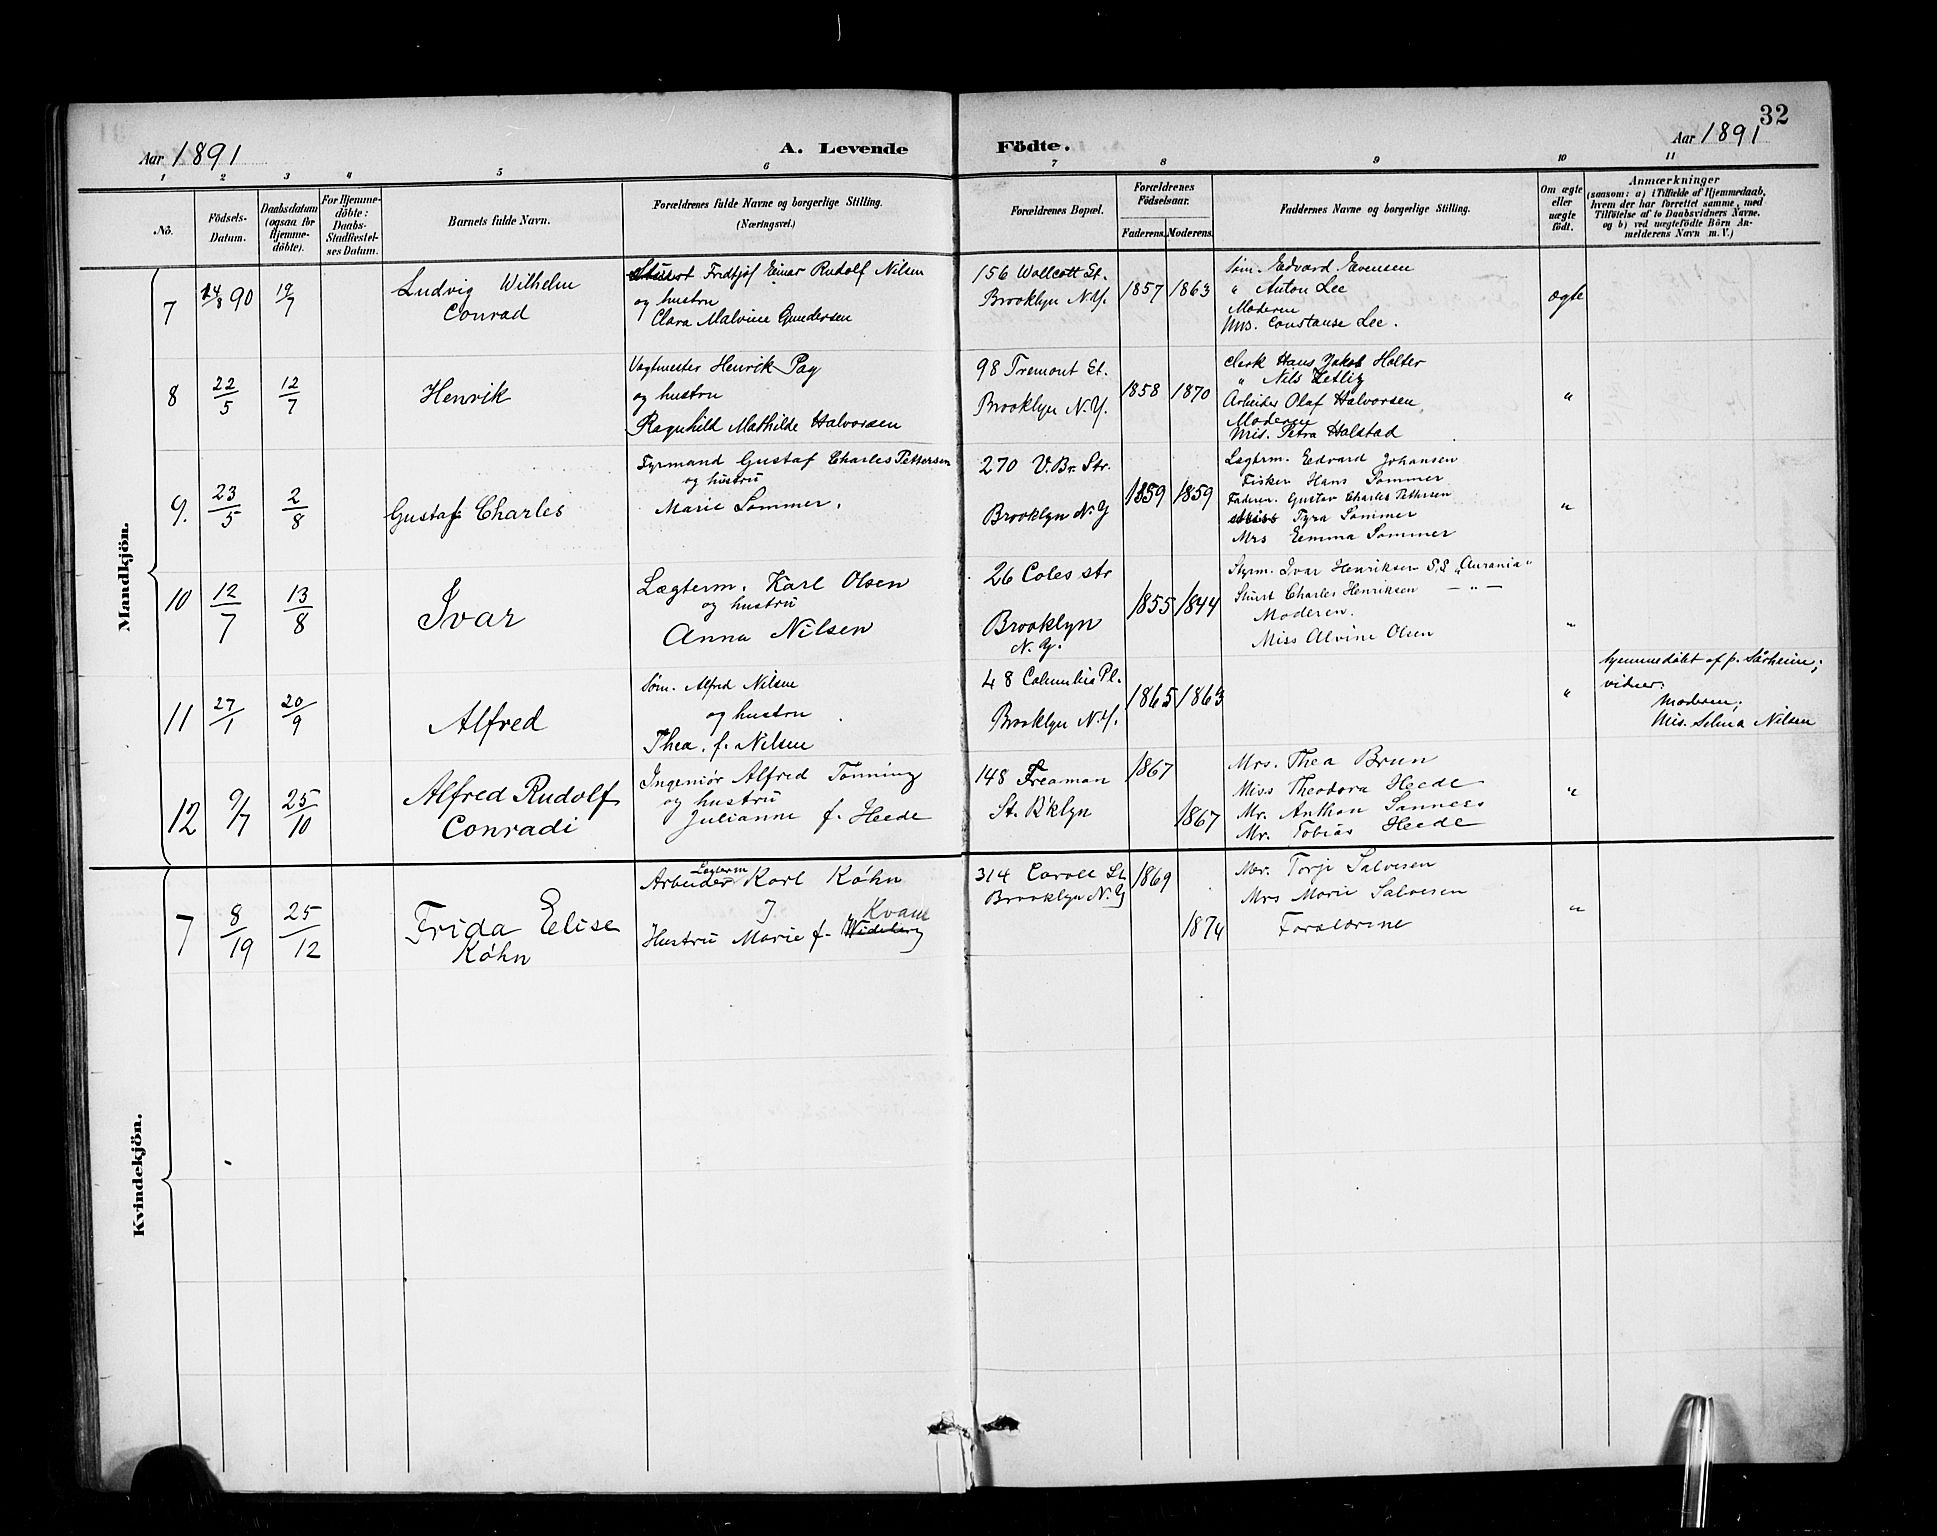 32
Aar 1891
A. Levende Födte.
Aar 1891
1 2 3 4 5 6 7 8 9 10 11
Nö.
Födsels-
Datum.
Daabsdatum
(ogsaa for
Hjemme-
döbte).
For Hjemme-
döbte:
Daabs-
Stadfæstel-
ses Datum.
Barnets fulde Navn.
Forældrenes fulde Navne og borgerlige Stilling.
(Næringsvei.)
Forældrenes Bopæl.
Forældrenes
Födselsaar.
Faderens. Moderens.
Faddernes Navne og borgerlige Stilling.
Om ægte
eller
uægte
födt.
Anmærkninger
(saasom: a) i Tilfælde af Hjemmedaab,
hvem der har forrettet samme, med
Tilföielse af to Daabsvidners Navne.
og b) ved uægtefödte Börn An-
melderens Navn m. V.)
Mandkjön.
7
14/8 90
19/7
Ludvig Wilhelm
Conrad
Stuert Fridtjof Einar Rudolf Nilsen
og hustru
Clara Malvine Gundersen
156 Wollcott St.
Brooklyn N.Y.
1857 1863
Söm. Edvard Evensen
" Anton Lee
Moderen
Mrs. Constanse Lee.
ægte
8
22/5
12/7
Henrik
Vagtmester Henrik Pay
og hustru
Ragnhild Mathilde Halvorsen
98 Tremont St.
Brooklyn N.Y.
1858 1870
Clerk Hans Jakob Holter
" Nils Zetlitz
Arbeider Olaf Halvorsen
Moderen
Mis. Petra Halstad
"
9.
23/5
2/8
Gustaf Charles
Fyrmand Gustaf Charles Pettersen
og hustru
Marie Sommer.
270 V. Br. Str.
Brooklyn N.Y
1859 1859
Lægterm. Edvard Johansen
Fisker Hans Sommer
Faderen. Gustav Charles Pettersen
Miss Tyra Sommer
Mrs Emma Sommer
"
10
12/7
13/8
Ivar
Lægterm. Karl Olsen
og hustru
Anna Nilsen
26 Coles str
Brooklyn
N.Y.
1855 1844
Styrm. Ivar Henriksen S.S „Aurania"
Stuert Charles Henriksen — „ —
Moderen.
Miss Alvine Olsen
"
11
27/1
20/9
Alfred
Söm. Alfred Nilsen
og hustru
Thea. f. Nilsen
48 Columbia Pl.
Brooklyn N.Y.
1865 1863
"
hjemmedøbt af p. Sårheim;
vidner:
Moderen;
Mis. Selma Nilsen
12
9/7
25/10
Alfred Rudolf
Conradi
Ingeniør Alfred Tonning
og hustru
Julianne f. Heede
148 Freaman
St. B'klyn
1867
1867
Mrs. Thea Brun
Miss Theodora Heede
Mr. Anthon Sannes
Mr. Tobias Heede
"
Kvindekjön.
7
8/19
25/12
Frida Elise
Køhn
Lægterm
Arbeider Karl Køhn
Kvam
Hustru Marie f. Wideberg
314 Caroll St
Brooklyn N.Y
1869
1874
Mr. Torje Salvesen
Mrs Marie Salvesen
Forældrene
"